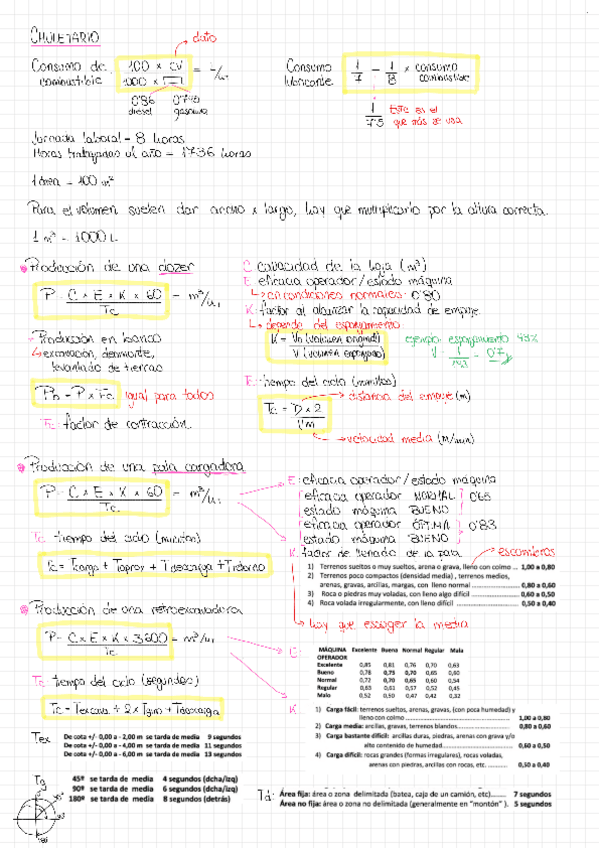 CHULETARIO
Consumo de combustible 100 x CV / 1000 x = L/h. → dato
0'86 diesel 0'745 gasolina
Consumo lubricante 1/7 - 1/8 x consumo combustible
1/7'5 Este es el que más se usa
Jornada laboral = 8 horas
Horas trabajadas al año = 1736 horas
1 área = 100 m²
Para el volumen suelen dar ancho x largo, hay que multiplicarlo por la altura correcta.
1 m³ = 1000 L
Producción de una dozer
P = C x E x K x 60 / Tc = m³/h.
C: capacidad de la hoja (m³)
E: eficacia operador/estado máquina
↳ en condiciones normales: 0'80
K: factor al alcanzar la capacidad de empuje.
↳ depende del esponjamiento
K = Vn (volumen original) / V (volumen esponjado)
ejemplo: esponjamiento 43%
1/1'43 = 0'7
- Producción en banco
↳ excavación, desmonte, levantado de tierras
Pb = P x Fc igual para todos
Fc: factor de contracción.
Tc: tiempo del ciclo (minutos)
Tc = D x 2 / Vm
→ distancia del empuje (m)
→ velocidad media (m/min)
Producción de una pala cargadora
P = C x E x K x 60 / Tc = m³/h.
E: eficacia operador/estado máquina
eficacia operador NORMAL
estado máquina BUENO
0'65
eficacia operador ÓPTIMA
estado máquina BUENO
0'83
Tc: tiempo del ciclo (minutos)
Tc = Tcarga + Taprox + Tdescarga + Tretorno
K: factor de llenado de la pala → escombros
1) Terrenos sueltos o muy sueltos, arena o grava, lleno con colmo ... 1,00 a 0,80
2) Terrenos poco compactos (densidad media) , terrenos medios, arenas, gravas, arcillas, margas, con lleno normal ... 0,80 a 0,60
3) Roca o piedras muy voladas, con lleno algo difícil ... 0,60 a 0,50
4) Roca volada irregularmente, con lleno difícil ... 0,50 a 0,40
→ hay que escoger la media
Producción de una retroexcavadora
P = C x E x K x 3.600 / Tc = m³/h.
E:
MÁQUINA Excelente Buena Normal Regular Mala
OPERADOR
Excelente 0,85 0,81 0,76 0,70 0,63
Bueno 0,78 0,75 0,70 0,65 0,60
Normal 0,72 0,70 0,65 0,60 0,54
Regular 0,63 0,61 0,57 0,52 0,45
Malo 0,52 0,50 0,47 0,42 0,32
Tc: tiempo del ciclo (segundos)
Tc = Texcava + 2 x Tgiro + Tdescarga
K:
1) Carga fácil: terrenos sueltos, arenas, gravas, (con poca humedad) y lleno con colmo ... 1,00 a 0,80
2) Carga media: arcillas, gravas, terrenos blandos ... 0,80 a 0,60
3) Carga bastante difícil: arcillas duras, piedras, arenas con grava y/o alto contenido de humedad ... 0,60 a 0,50
4) Carga difícil: rocas grandes (formas irregulares), rocas voladas, arenas con piedras, arcillas con rocas, etc. ... 0,50 a 0,40
Tex
De cota +/- 0,00 a - 2,00 m se tarda de media 9 segundos
De cota +/- 0,00 a - 4,00 m se tarda de media 11 segundos
De cota +/- 0,00 a - 6,00 m se tarda de media 13 segundos
Tg
45º se tarda de media 4 segundos (dcha/izq)
90º se tarda de media 6 segundos (dcha/izq)
180º se tarda de media 8 segundos (detrás)
Td: Área fija: área o zona delimitada (batea, caja de un camión, etc) ... 7 segundos
Área no fija: área o zona no delimitada (generalmente en "montón" ). 5 segundos